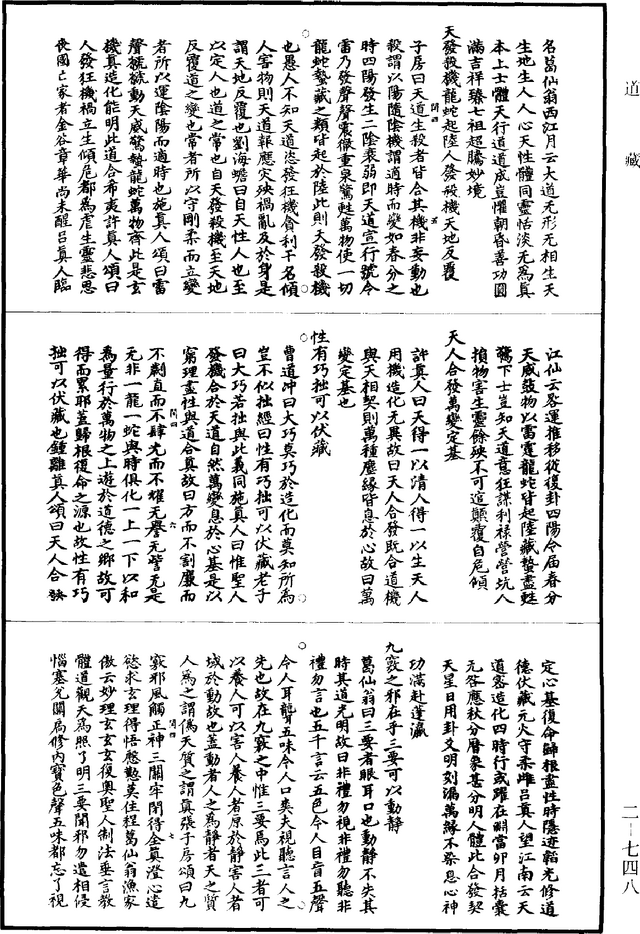 道藏
名葛仙翁西江月云大道无形无相生天
生地生人人心天性體同靈恬淡无為真
本上士體天行道道成豈懼朝昏善功圓
滿吉祥臻七祖超騰妙境
天發殺機龍蛇起陸人發殺機天地反覆
子房曰天道生殺者皆合其機非妄動也
殺謂以陽隨陰機謂適時而變如春分之
時四陽發生二陰衰弱即天道宣行號令
雷乃發聲聲震徹重泉驚甦萬物使一切
龍蛇蟄藏之類皆起於陸此則天發殺機
也愚人不知天道恣發狂機貪利干名傾
人害物則天道報應灾殃禍亂及於身是
謂天地反覆也劉海蟾曰自天性人也至
以定人也道之常也自天發殺機至天地
反覆道之變也常者所以守剛柔而立變
者所以運陰陽而適時也施真人頌曰雷
聲虩虩動天威驚蟄龍蛇萬物齊此是玄
機真造化能明此道合希夷許真人頌曰
人發狂機禍立生傾危都為虐生靈悲思
喪國亡家者金谷章華尚未醒呂真人臨
江仙云客運推移從復卦四陽令屆春分
天威發物以雷霆龍蛇皆起陸藏蟄盡甦
驚下士豈知天道意狂謀利祿營營坑人
損物害生靈餘殃不可逭顛覆自危傾
天人合發萬變定基
許真人曰天得一以清人得一以生天人
用機造化无異故曰天人合發既合道機
與天相契則萬種塵緣皆息於心故曰萬
變定基也
性有巧拙可以伏藏
曹道冲曰大巧莫巧於造化而莫知所為
豈不似拙經曰性有巧拙可以伏藏老子
曰大巧若拙與此義同施真人曰惟聖人
發機合於天道自然萬變息於心基是以
窮理盡性與道合真故曰方而不割廉而
不劌直而不肆光而不耀无譽无訾无是
无非一龍一蛇與時俱化一上一下以和
為量行於萬物之上遊於道德之鄉故可
得而累邪蓋歸根復命之源也故性有巧
拙可以伏藏也鍾離真人頌曰天人合發
定心基復命歸根盡性時隱迹韜光修道
德伏藏元火守柔雌呂真人望江南云天
道客造化四時行或躍在淵當卯月括囊
无咎應秋分曆象甚分明人體此合發契
天星日用卦爻明刻漏萬緣不染息心神
功滿赴蓬瀛
九竅之邪在乎三要可以動静
葛仙翁曰三要者眼耳口也動静不失其
時其道光明故曰非禮勿視非禮勿聽非
禮勿言也五千言云五色令人目盲五聲
令人耳聾五味令人口爽夫視聽言人之
先也故在九竅之中惟三要為此三者可
以養人可以害人養人者原於静害人者
城於動故也蓋動者人之為静者天之質
人為之謂偽天質之謂真張子房頌曰九
竅邪風觸正神三關牢閉得全真澄心遣
慾求玄理得悟慇懃莫住程葛仙翁漁家
傲云妙理玄玄玄復奧聖人制法垂言教
體道觀天為照了明三要閑邪勿遣相侵
惱塞兌關扃修内寶色聲五味都忘了視
二一七四八